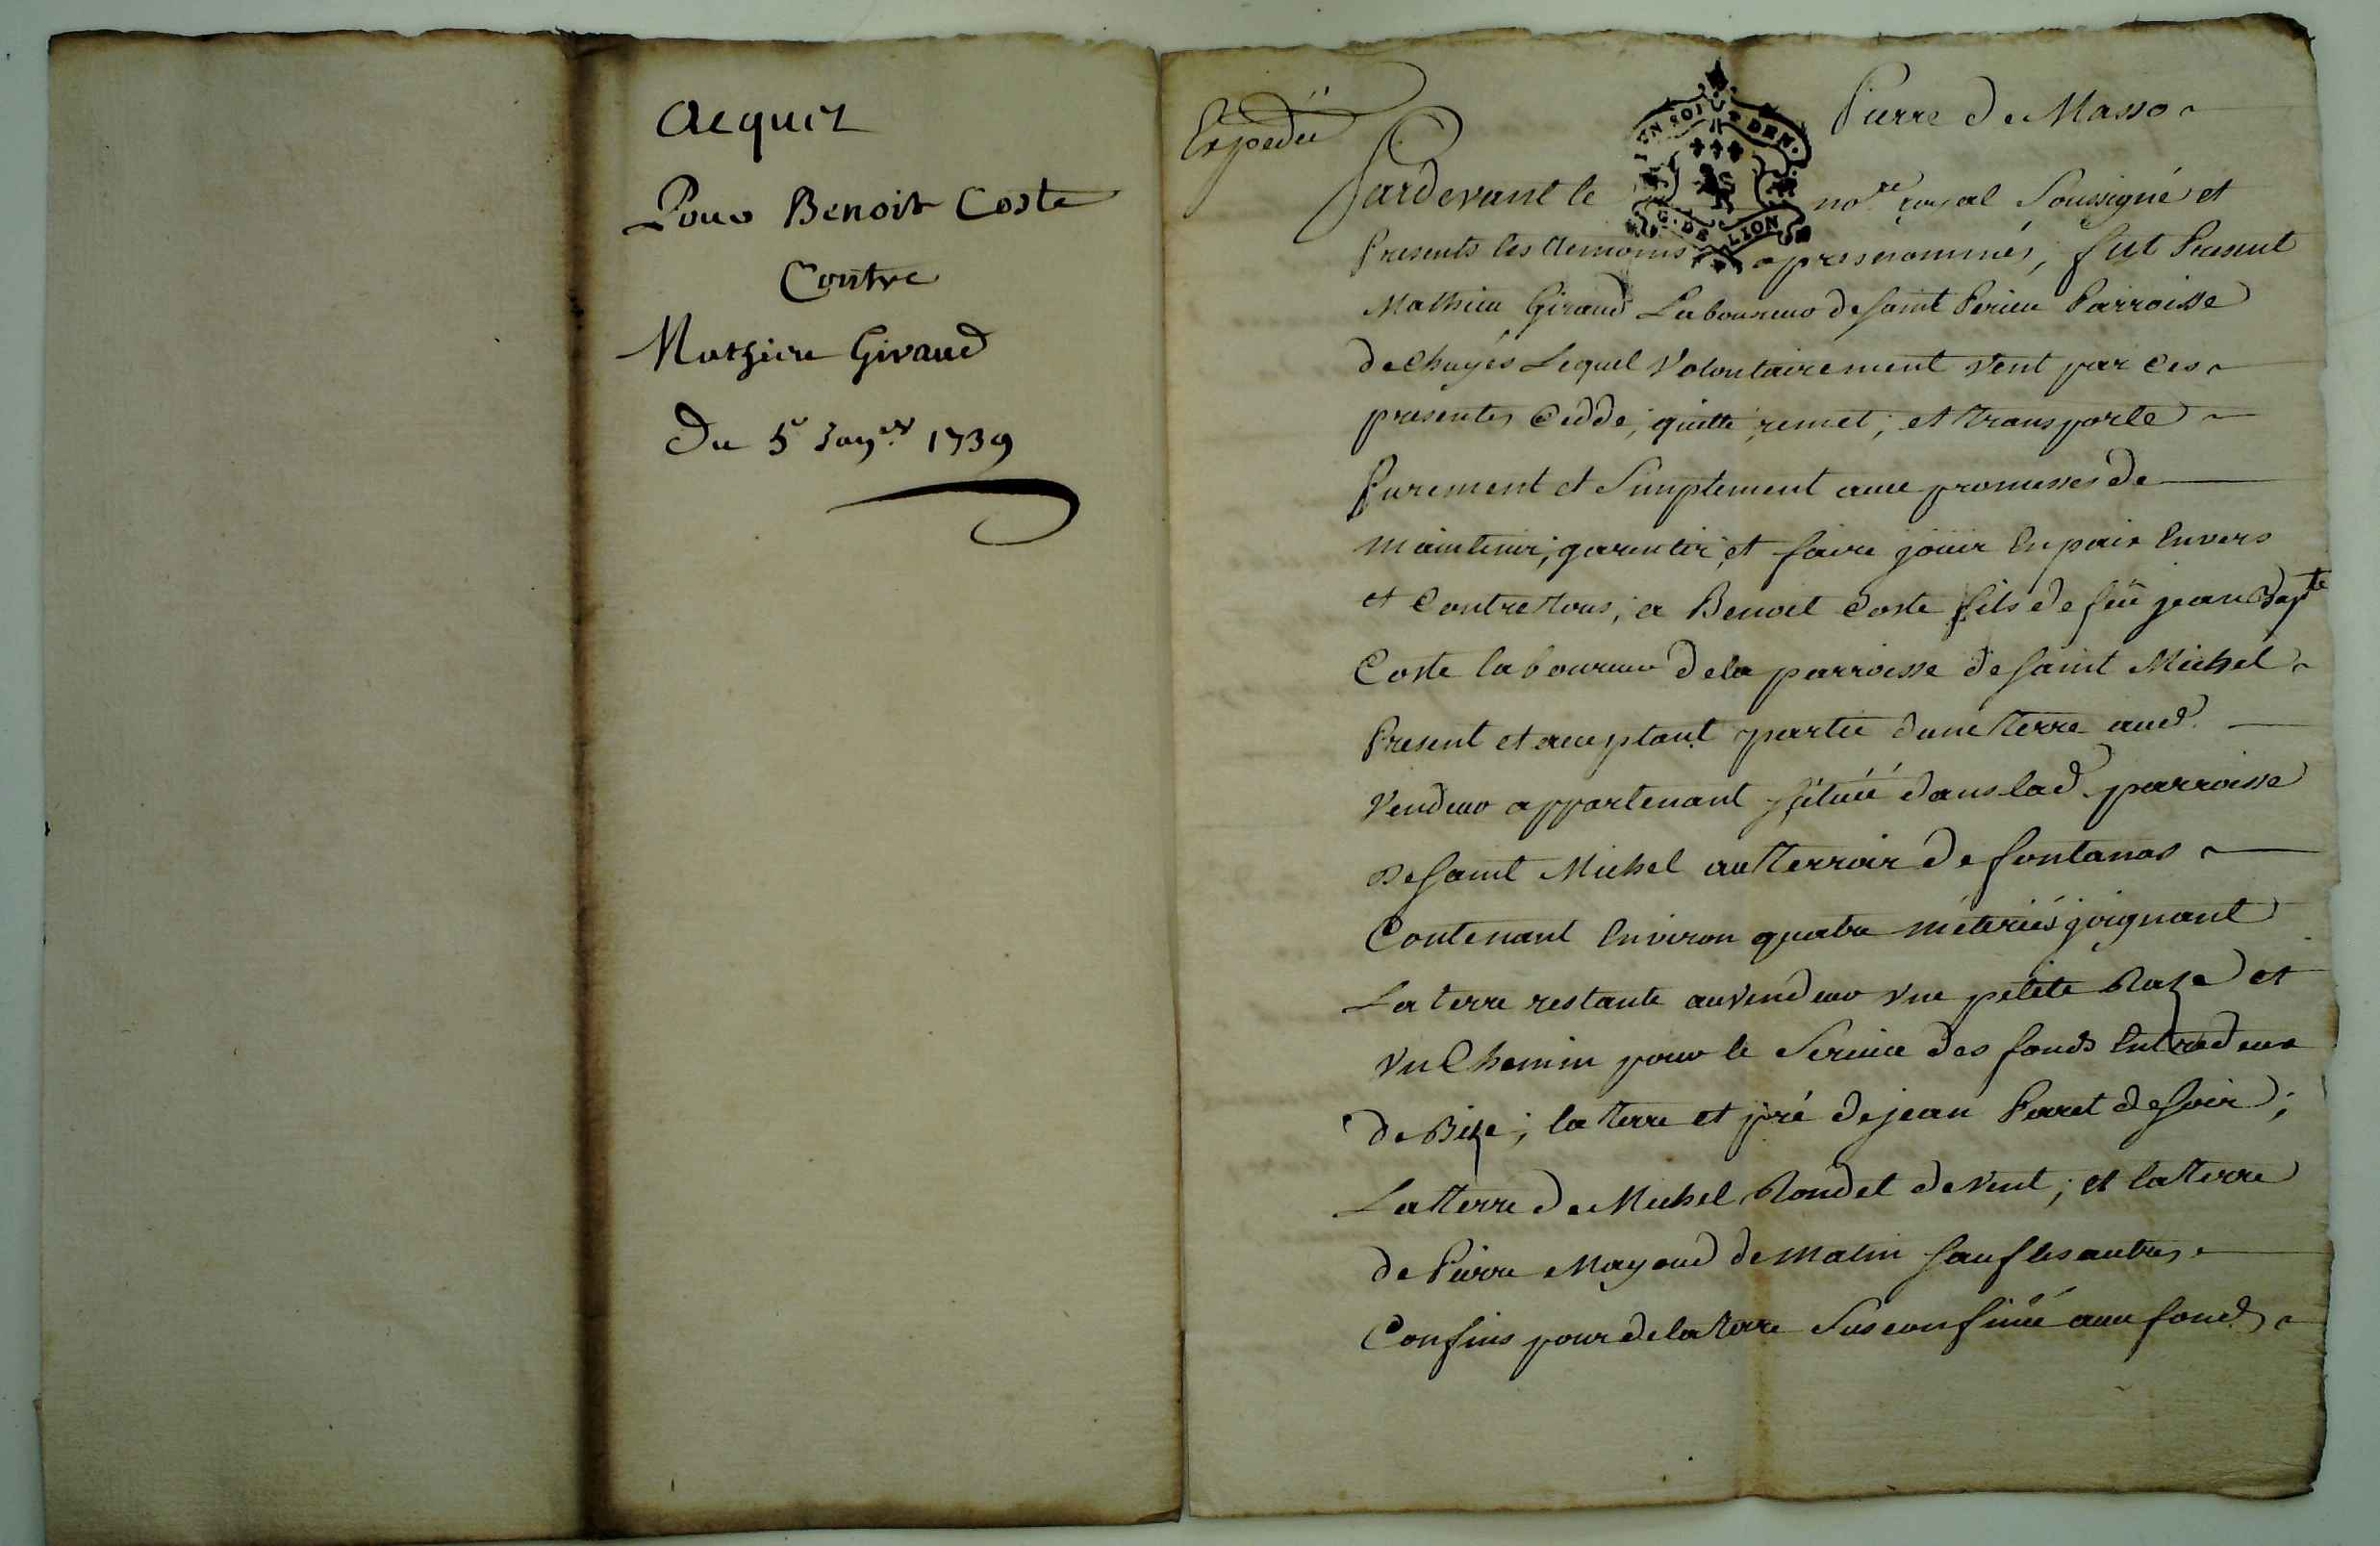 Acquit
Pour Benoit Coste
Contre
Mathieu Giraud
Du 5e Janer 1739
Expedié
Pierre de Masso
Pardevant le nore royal Soussigné et
Presents les temoins apres nommés, fut Present
Mathieu Giraud Laboureur de saint Perieu Parroisse
de Chuyés Lequel Volontairement vent par ces
presentes Cedde, quitte, remet, et transporte
Purement et Simplement avec promesses de
maintenir, garentir, et faire jouir En paix Envers
et Contre tous, a Benoit Coste fils de feü jean Bapte
Coste laboureur de la parroisse de saint Michel
Present et acceptant partie dune terre aud.
Vendeur appartenant scituée dans lad. parroisse
De saint Michel au terroir de fontanas
Contenant Environ quatre méteriés joignant
La terre restante au vendeur vne petite Raze et
vn Chemin pour le Service des fonds Entredeux
de Bize; la terre et pré de jean Paret de soir;
La terre de Michel Rondet de vent; et la terre
de Pierre Mayoud de matin sauf les autres
Confins pour de la terre Susconfinée avec fonds